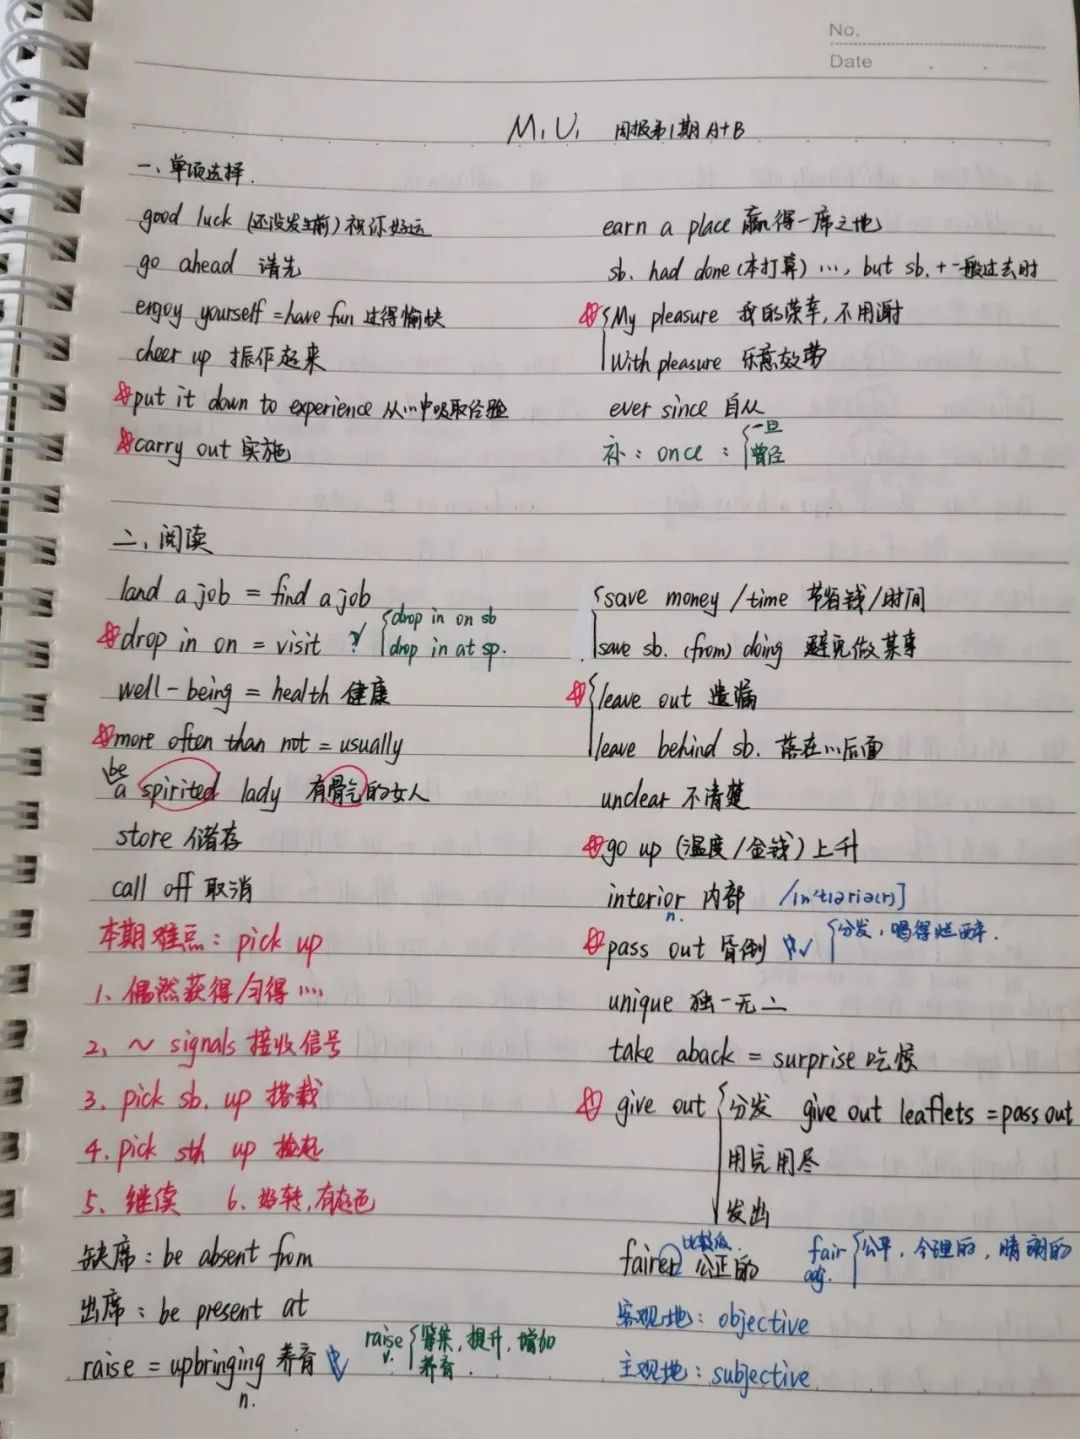 No.
Date
M1U1 周报第1期 A+B
一、单项选择.
good luck (还没发生前)祝你好运
go ahead 请先
engoy yourself = have fun 过得愉快
cheer up 振作起来
put it down to experience 从…中吸取经验
carry out 实施
earn a place 赢得一席之地
sb. had done (本打算) …, but sb. + 一般过去时
My pleasure 我的荣幸,不用谢
With pleasure 乐意效劳
ever since 自从
补: once : 一旦
曾经
二、阅读
land a job = find a job
drop in on = visit drop in on sb
drop in at sp.
well-being = health 健康
more often than not = usually
be
a spirited lady 有骨气的女人
store 储存
call off 取消
本期难点: pick up
1、偶然获得/习得…
2、~ signals 接收信号
3. pick sb. up 搭载
4. pick sth up 捡起
5、继续 6、好转,有起色
缺席: be absent from
出席: be present at
raise = upbringing 养育 raise 筹集,提升,增加
n. v. 养育.
save money / time 节省钱/时间
save sb. (from) doing 避免做某事
leave out 遗漏
leave behind sb. 落在…后面
unclear 不清楚
go up (温度/金钱) 上升
interior 内部 /ɪn'tɪəriə(r)]
n.
pass out 昏倒 分发,喝得烂醉.
unique 独一无二
take aback = surprise 吃惊
give out 分发 give out leaflets = pass out
用完用尽
发出
比较级.
fairer 公正的 fair 公平,合理的,晴朗的
adj.
客观地: objective
主观地: subjective